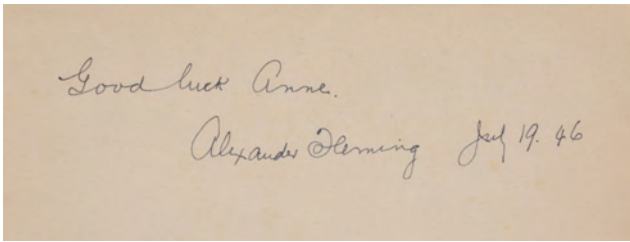 Good luck Anne.
Alexander Fleming July 19. 46